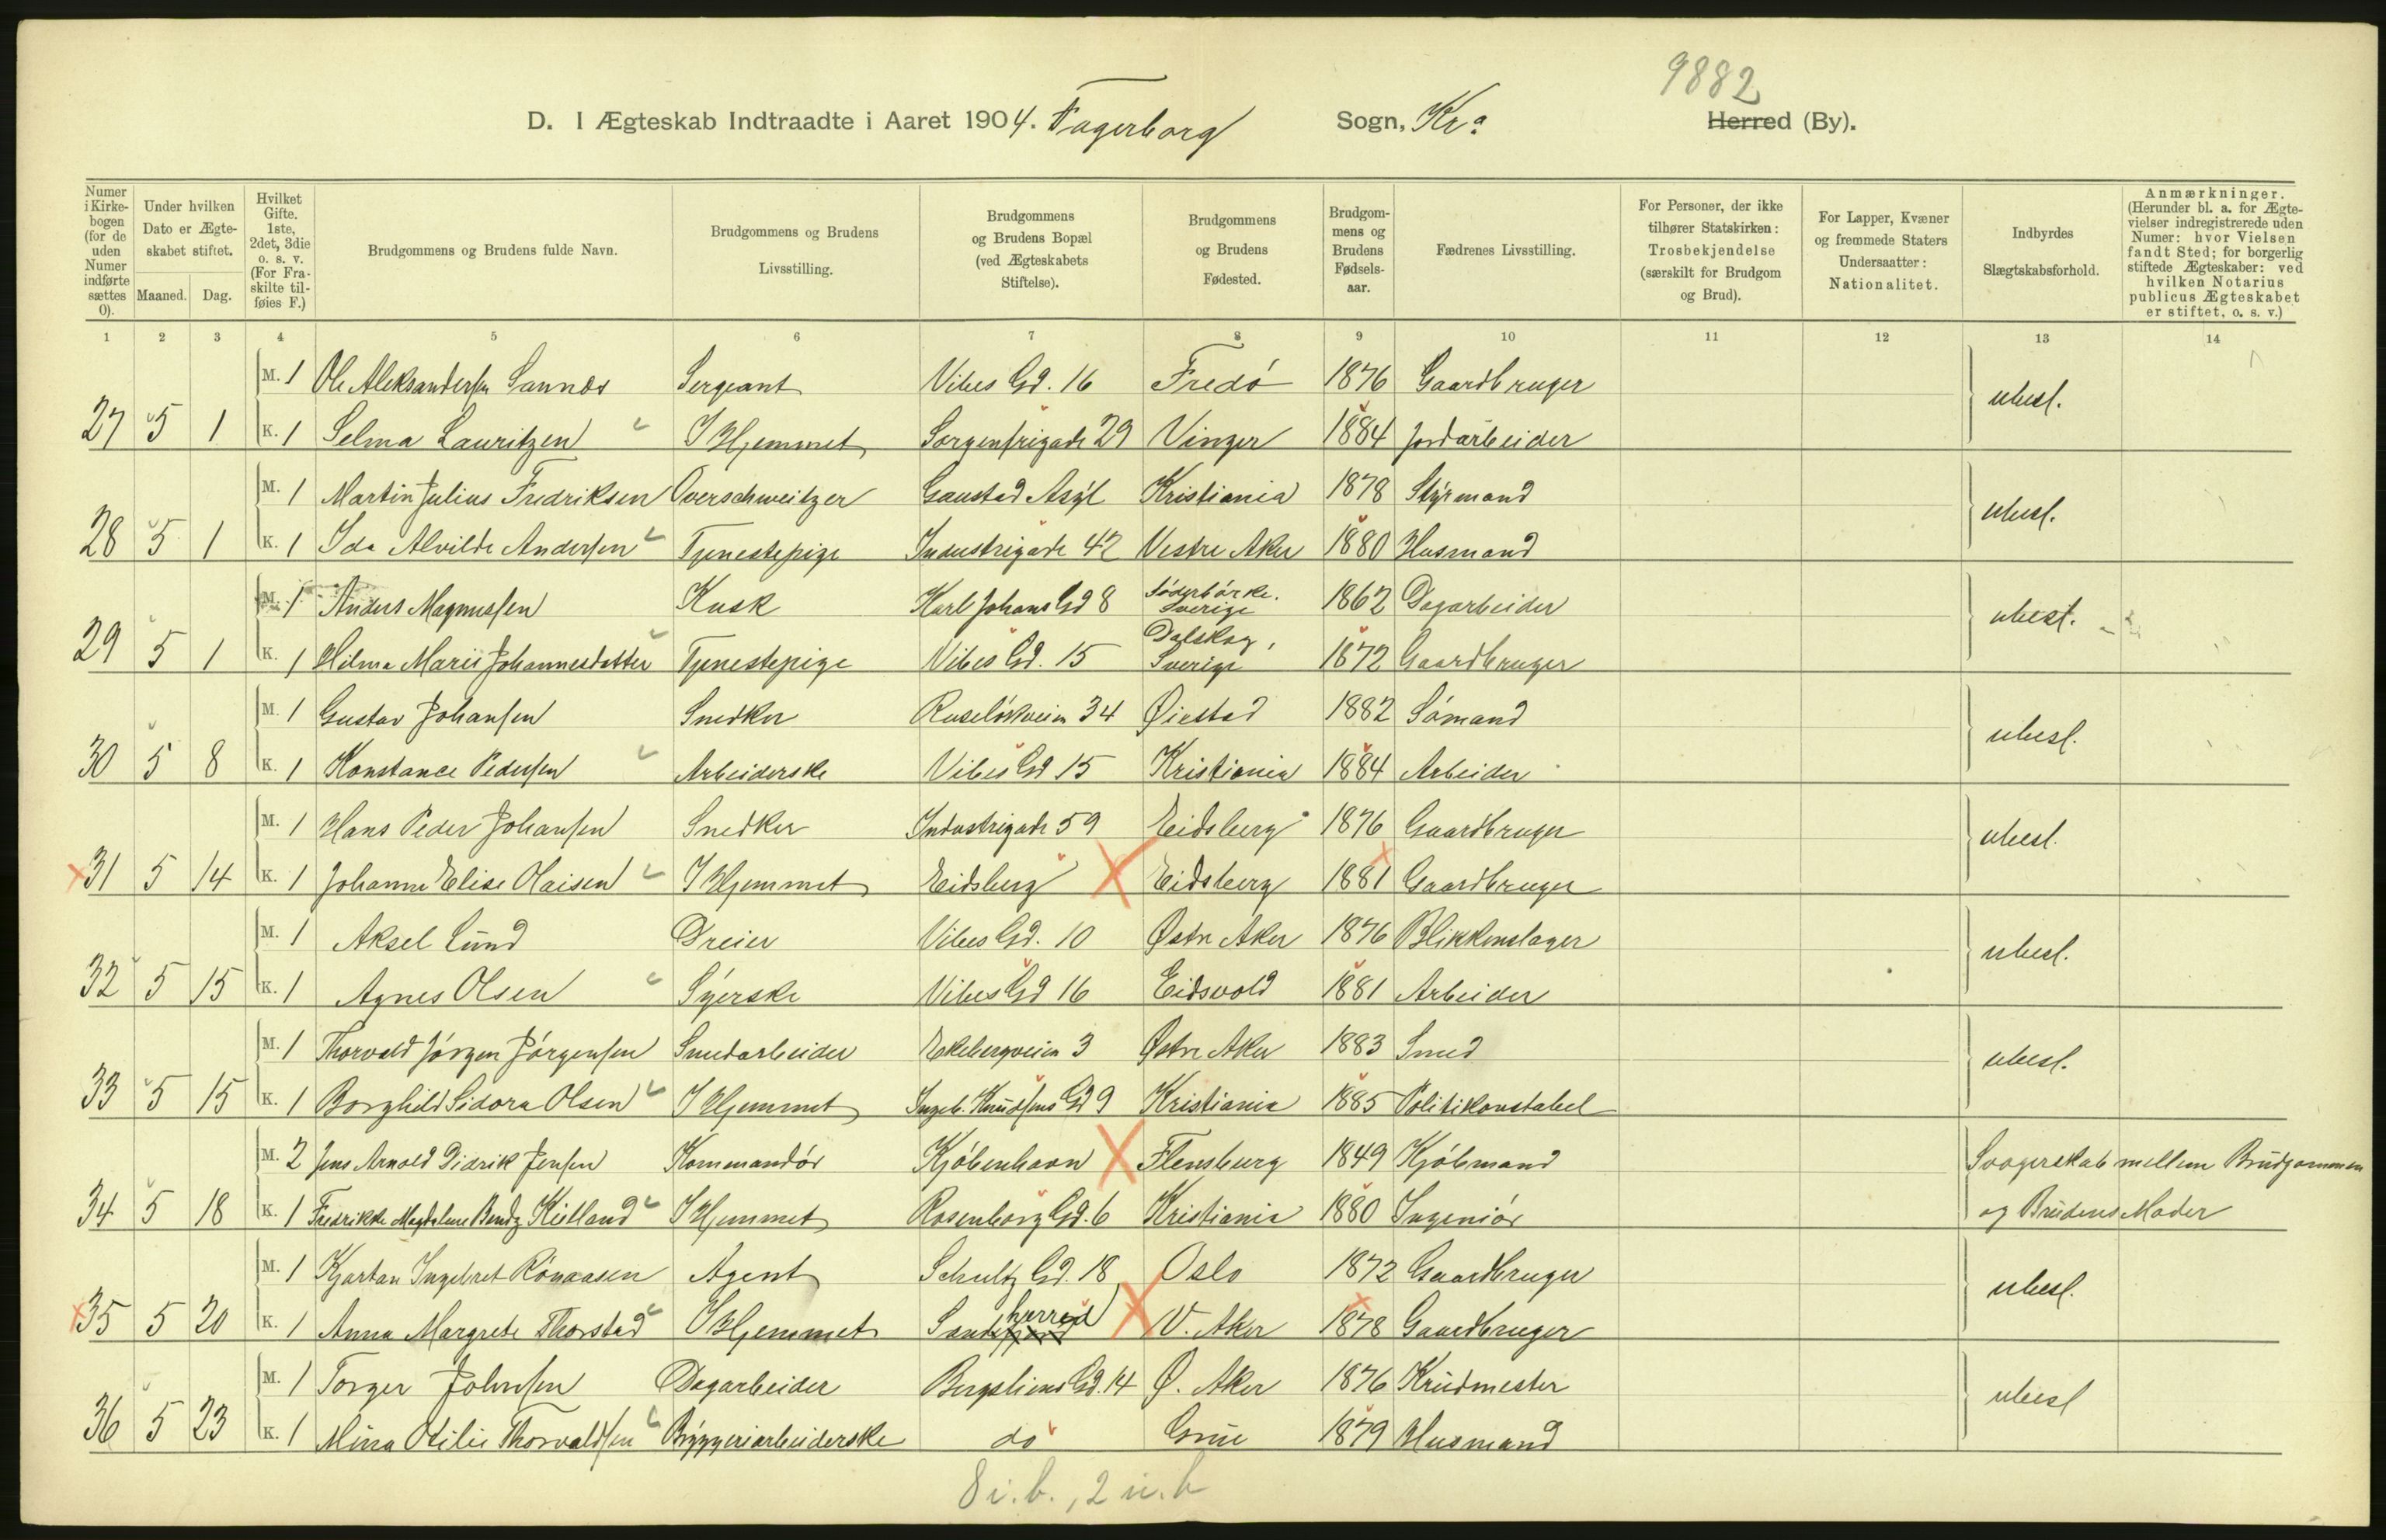 9882
D. I Ægteskab Indtraadte i Aaret 1904. Fagerborg Sogn, Kra Herred (By).
Numer i Kirkebogen (for de uden Numer indførte sættes 0). Under hvilken Dato er Ægteskabet stiftet. Maaned. Dag. Hvilket Gifte. 1ste, 2det, 3die o. s. v. (For Fraskilte tilføies F.) Brudgommens og Brudens fulde Navn. Brudgommens og Brudens Livsstilling. Brudgommens og Brudens Bopæl (ved Ægteskabets Stiftelse). Brudgommens og Brudens Fødested. Brudgommens og Brudens Fødselsaar. Fædrenes Livsstilling. For Personer, der ikke tilhører Statskirken: Trosbekjendelse (særskilt for Brudgom og Brud). For Lapper, Kvæner og fremmede Staters Undersaatter: Nationalitet. Indbyrdes Slægtskabsforhold. Anmærkninger. (Herunder bl. a. for Ægtevielser indregistrerede uden Numer: hvor Vielsen fandt Sted; for borgerlig stiftede Ægteskaber: ved hvilken Notarius publicus Ægteskabet er stiftet, o. s. v.)
1 2 3 4 5 6 7 8 9 10 11 12 13 14
M. 1 Ole Aleksandersen Sannes Sergeant Vibes Gd. 16 Fredø 1876 Gaardbruger ubesl.
27 5 1 K. 1 Selma Lauritzen I Hjemmet Sorgenfrigade 29 Vinger 1884 Jordarbeider
M. 1 Martin Julius Fredriksen Overschweitzer Gaustad Asyl Kristiania 1878 Styrmand ubesl.
28 5 1 K. 1 Ida Alvilde Andersen Tjenestepige Industrigade 42 Vestre Aker 1880 Husmand
M. 1 Anders Magnussen Kusk Karl Johans Gd 8 Söderbärke. Sverige 1862 Dagarbeider ubesl.
29 5 1 K. 1 Hilma Marie Johannesdatter Tjenestepige Vibes Gd. 15 Dalskog, Sverige 1872 Gaardbruger
M. 1 Gustav Johansen Snedker Ruseløkveien 34 Øiestad 1882 Sømand ubesl.
30 5 8 K. 1 Konstance Pedersen Arbeiderske Vibes Gd 15 Kristiania 1884 Arbeider
M. 1 Hans Peder Johansen Snedker Industrigade 59 Eidsberg 1876 Gaardbruger ubesl.
31 5 14 K. 1 Johanne Elise Olaisen I Hjemmet Eidsberg Eidsberg 1881 Gaardbruger
M. 1 Aksel Lund Dreier Vibes Gd. 10 Østre Aker 1876 Blikkenslager ubesl.
32 5 15 K. 1 Agnes Olsen Syerske Vibes Gd 16 Eidsvold 1881 Arbeider
M. 1 Thorvald Jørgen Jørgensen Smedarbeider Ekebergveien 3 Østre Aker 1883 Smed ubesl.
33 5 15 K. 1 Borghild Sidora Olsen I Hjemmet Ingeb. Knudsens Gd 9 Kristiania 1885 Politikonstabel
M. 2 Jens Arnold Didrik Jensen Kommandør Kjøbenhavn Flensburg 1849 Kjøbmand Svogerskab mellem Brudgommen
34 5 18 K. 1 Fredrikke Magdalene Bendz Kielland I Hjemmet Rosenborg Gd. 6 Kristiania 1880 Ingeniør og Brudens Moder
M. 1 Kjartan Ingebret Rønaasen Agent Schultz Gd. 18 Oslo 1872 Gaardbruger ubesl.
35 5 20 K. 1 Anna Margrete Thorstad I Hjemmet Sande herred V. Aker 1878 Gaardbruger
M. 1 Torger Johnsen Dagarbeider Bergsliens Gd. 14 Ø. Aker 1876 Krudmester ubesl
36 5 23 K. 1 Mina Otilie Thorvaldsen Bryggeriarbeiderske do Grue 1879 Husmand
8 i. b., 2 u. b